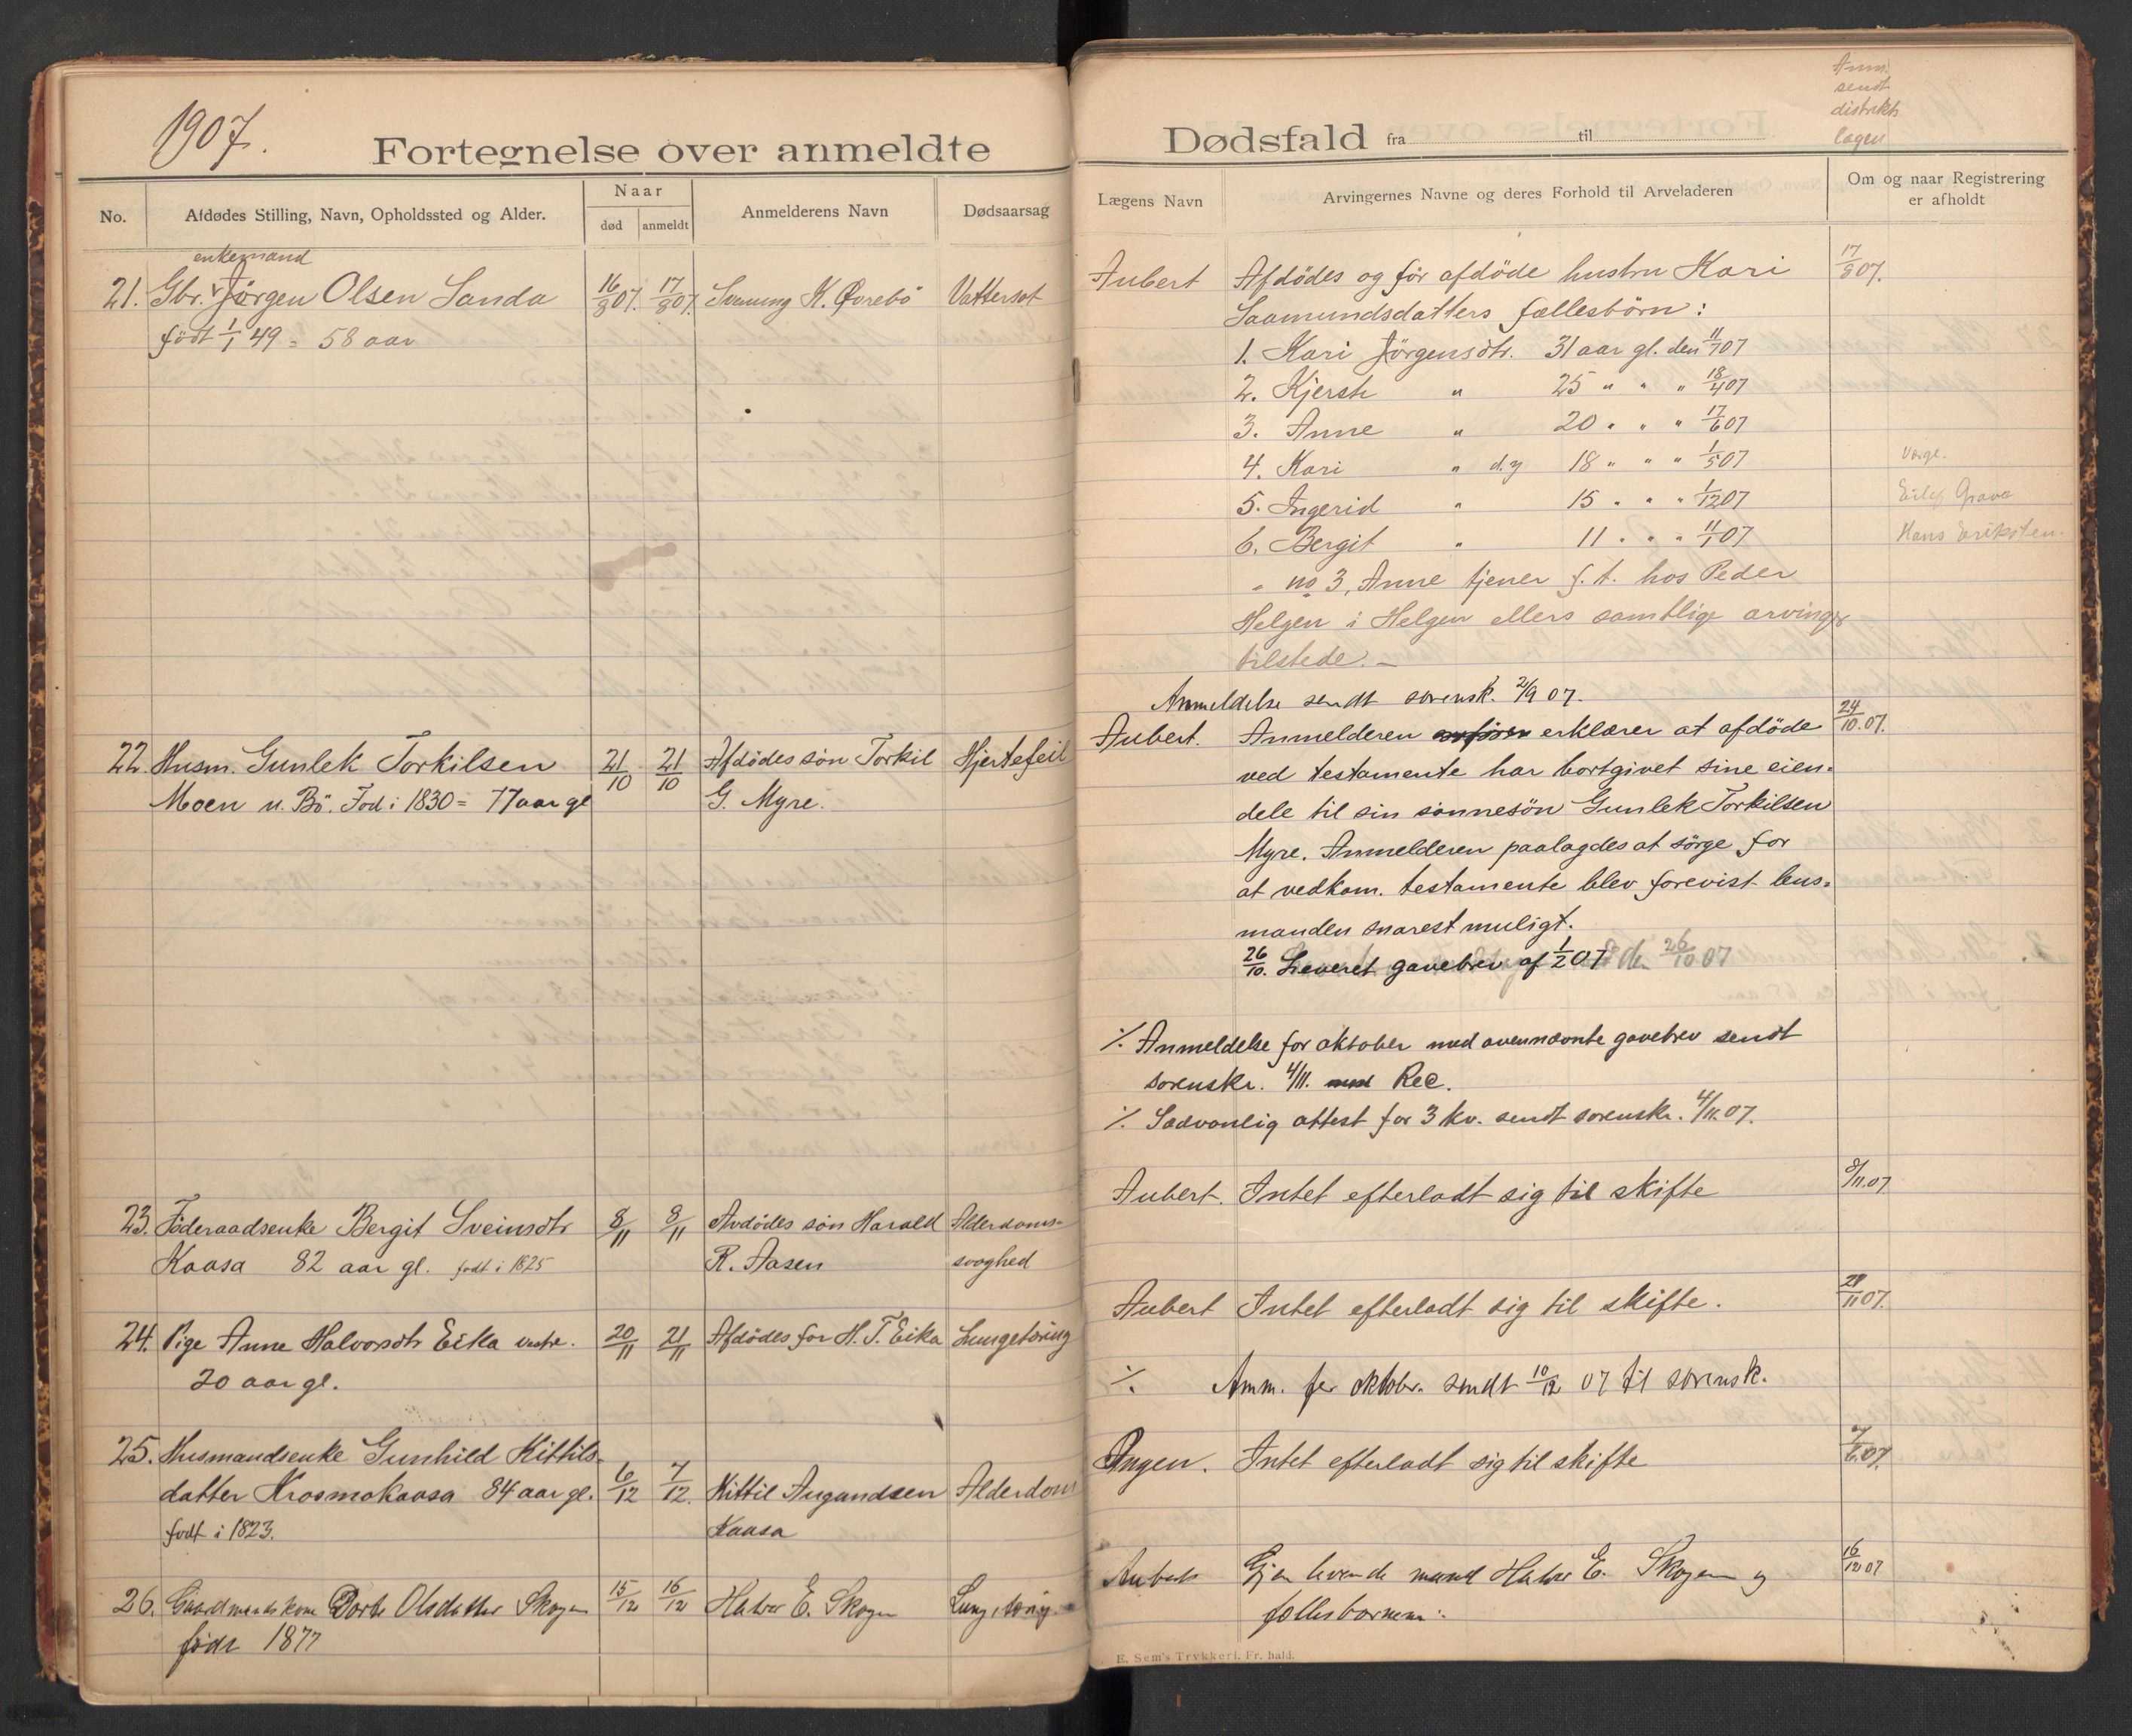 1907.
Fortegnelse over anmeldte
No.
Afdødes Stilling, Navn, Opholdssted og Alder.
Naar
død
anmeldt
Anmelderens Navn
Dødsaarsag
enkemand
21. Gbr. Jörgen Olsen Sanda 16/8 07. 17/8 07. Svenung K. Øvrebö Vattersot
födt 1/1 49 = 58 aar
22. Husm. Gunlek Torkilsen 21/10 21/10 Afdödes sön Torkil Hjertefeil
Moen u. Bö. Född i 1830 = 77 aar gl G. Myre.
23. Föderaadsenke Bergit Sveinsdtr 8/11 8/11 Avdödes sön Harald Alderdoms-
Kaasa 82 aar gl. født i 1825 R. Aasen svaghed
24. Pige Anne Halvorsdtr Eika vestre. 20/11 21/11 Afdödes far H. T. Eika Lungetæring
20 aar gl.
25. Husmandsenke Gunhild Kittils-
datter Krosmokaasa 84 aar gl. 6/12 7/12. Kittil Augundsen Alderdom
født i 1823. Kaasa
26. Gaardmandskone Dorte Olsdatter Skogen 15/12 16/12 Halvor E. Skogen Lungetæring
född 1877
Anm.
sendt
distrikts
lægen
Dødsfald fra til
Lægens Navn
Arvingernes Navne og deres Forhold til Arveladeren
Om og naar Registrering
er afholdt
Aubert Afdödes og för afdöde hustru Kari 17/8 07.
Saamundsdatters fællesbörn:
1. Kari Jörgensdtr. 31 aar gl. den 11/7 07
2. Kjersti " 25 " " " 18/4 07
3. Anne " 20 " " " 17/6 07
4. Kari " d.y 18 " " " 1/5 07 Værge.
5. Ingerid " 15 " " " 1/12 07 Eilef Grava
6. Bergit " 11 " " " 11/1 07 Hans Eriksten.
" no 3, Anne tjener f. t. hos Peder
Helgen i Helgen ellers samtlige arvinger
tilstede. —
Anmeldelse sendt sorensk. 2/9 07.
Aubert. Anmelderen erklærer at afdöde 24/10.07.
ved testamente har bortgivet sine eien-
dele til sin sönnesön Gunlek Torkilsen
Myre. Anmelderen paalagdes at sörge for
at vedkom. testamente blev forevist lens-
manden snarest muligt.
26/10. Leveret gavebrev af 1/2 07 den 26/10 07
⁒ Anmeldelse for oktober med ovennævnte gavebrev sendt
sorenskr. 4/11. Rec.
⁒ Sædvanlig attest for 3 kv. sendt sorenskr. 4/11.07.
Aubert. Intet efterladt sig til skifte 8/11.07
Aubert Intet efterladt sig til skifte. 21/11 07.
⁒ Anm. for oktober sendt 10/12 07 til sorensk.
Angen. Intet efterladt sig til skifte 7/12.07.
Aubert Gjenlevende mand Halvor E. Skogen og 16/12 07
fællesbørnene:
E. Sem's Trykkeri. Fr. hald.